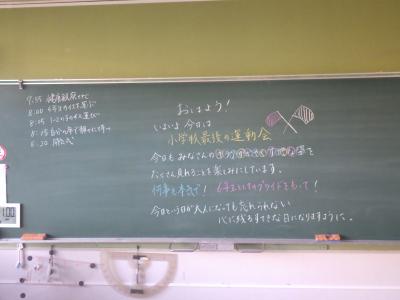 7:55 健康観察
8:00 イスを運ぶ
8:05 1・2のイス運び
8:15 自分の席で静かに待つ
8:20 開会式
おはよう!
いよいよ今日は
小学校最後の運動会
今日もみなさんの
たくさん見れることを楽しみにしています。
何事も本気で! 6年生としてのプライドをもって!
今日という日が大人になっても忘れられない
心に残るすてきな日になりますように。
1:00